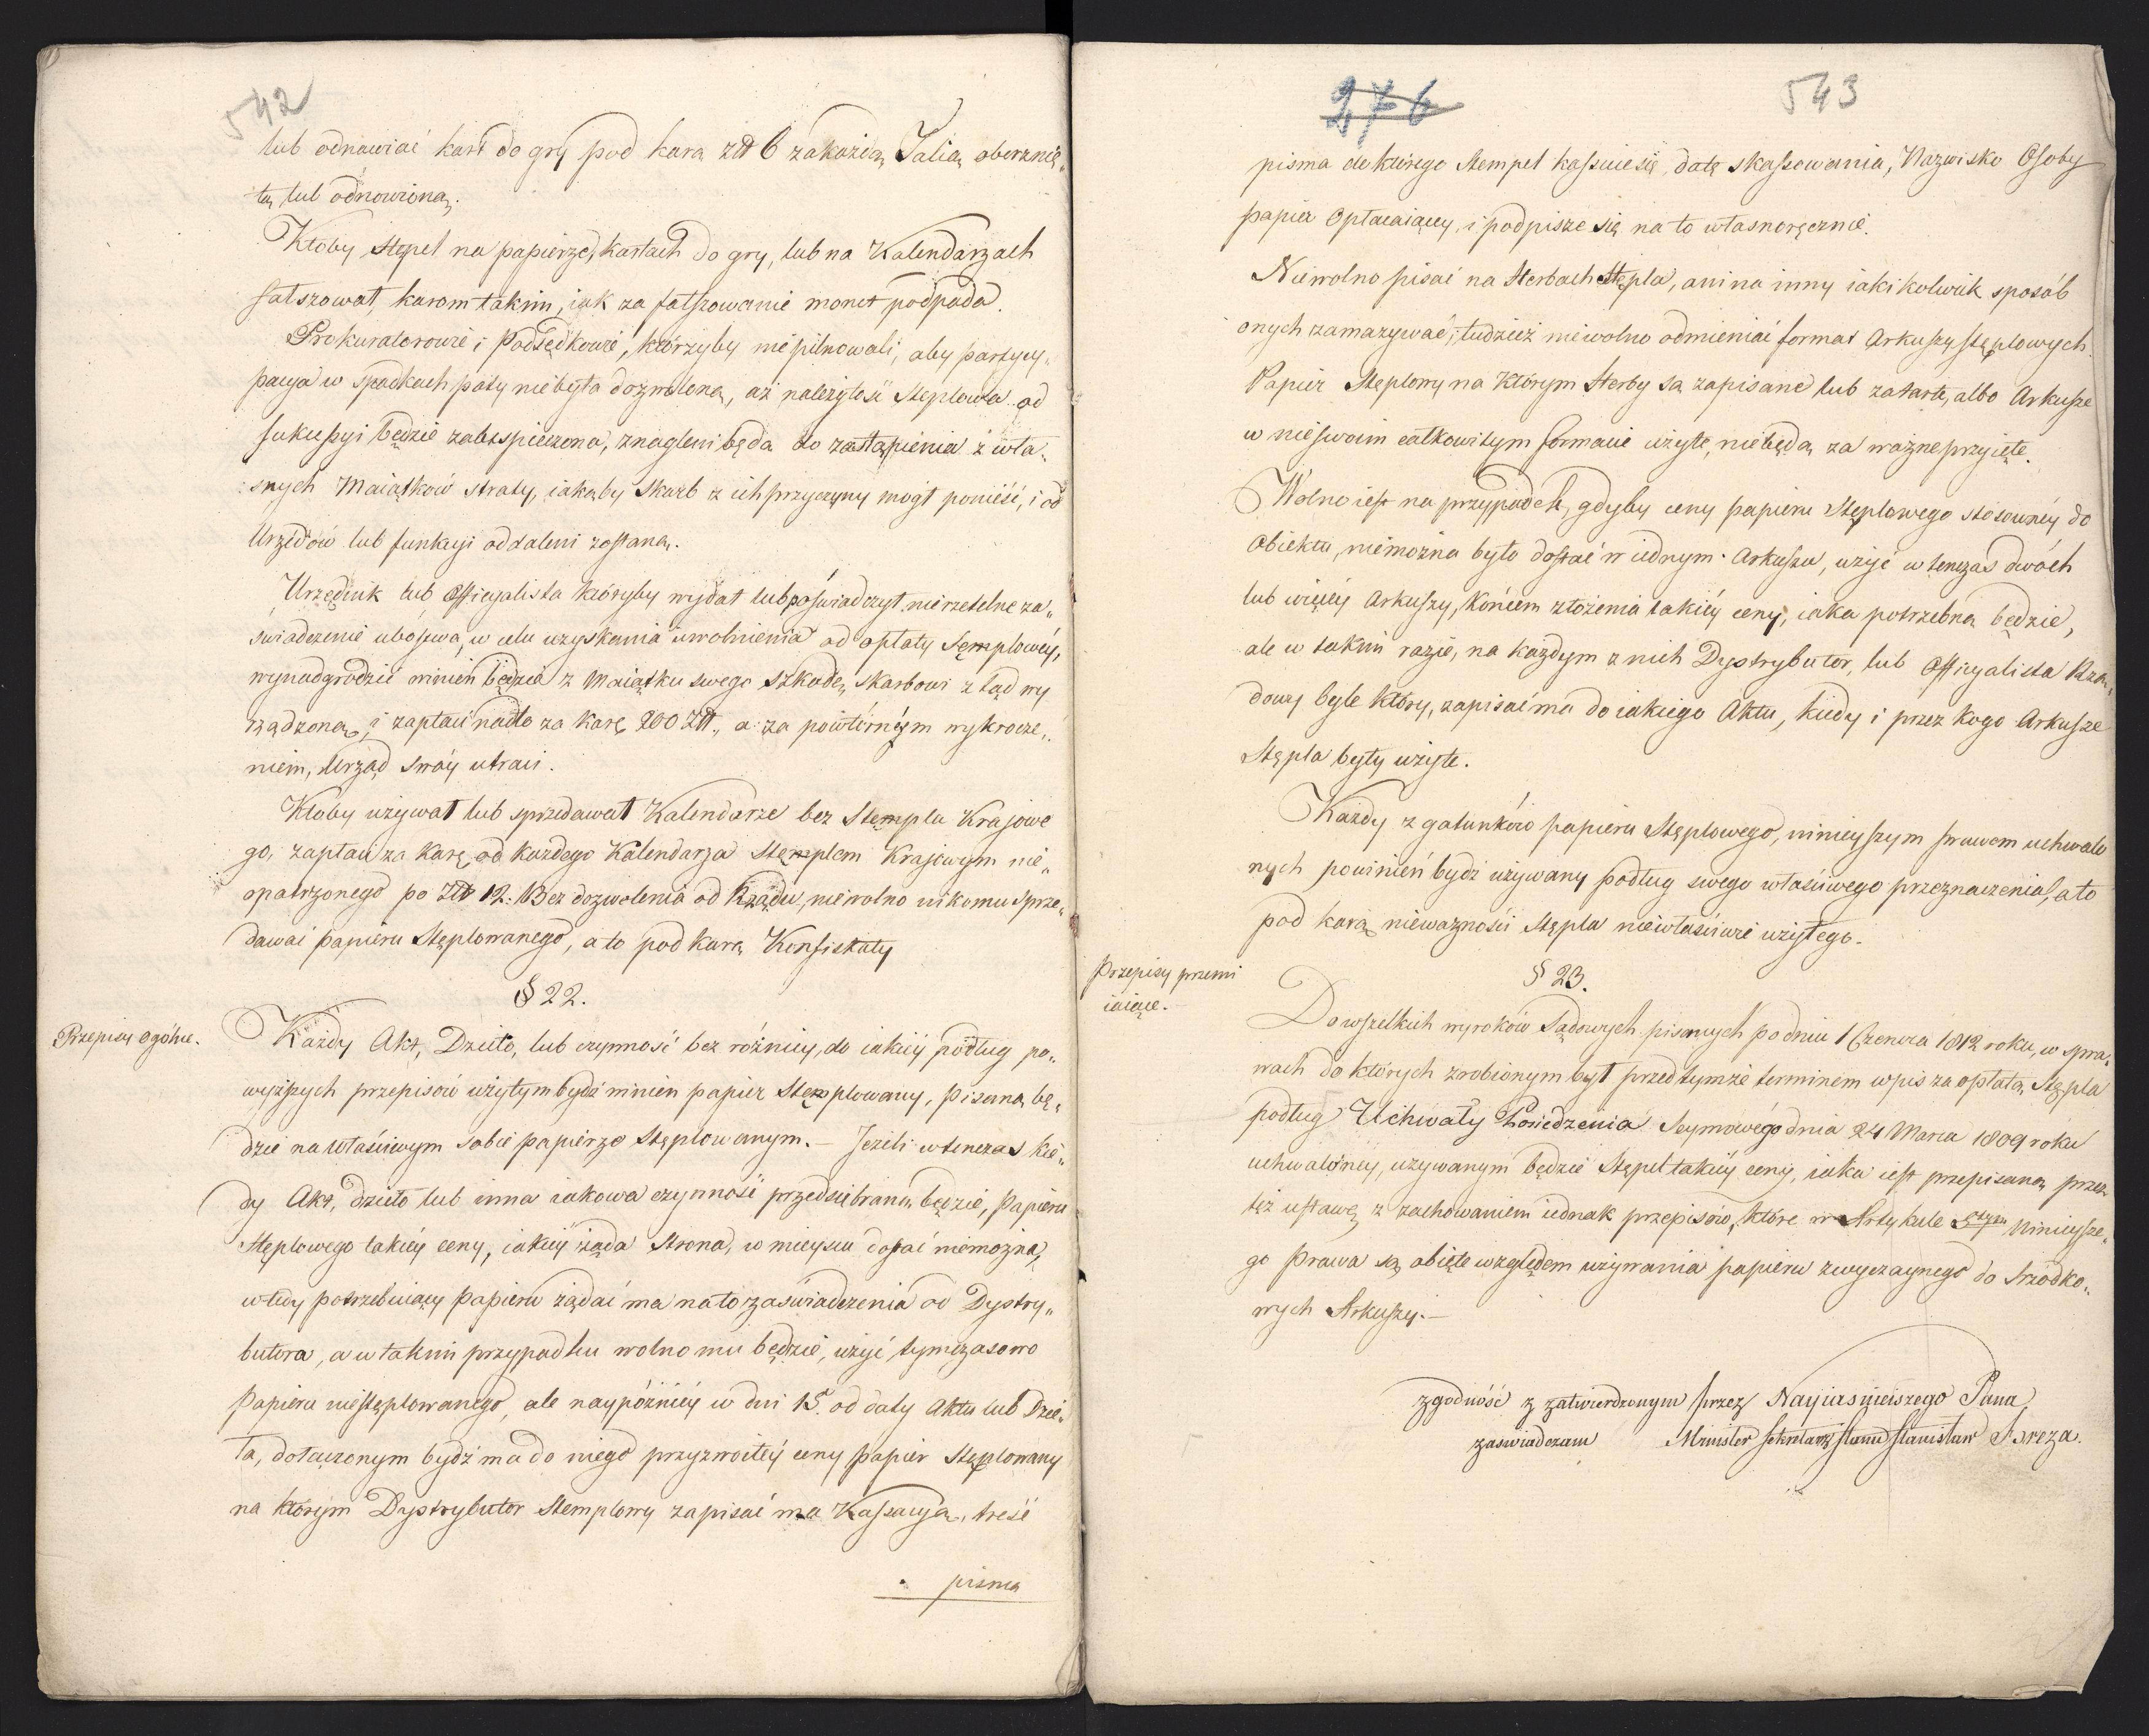 542
lub odnawiać kart do gry pod karą złt 6 za każdą Talią oberznię„
tą lub odnowioną.
Ktoby stępel na papierze, kartach do gry, lub na Kalendarzach
fałszował, karom takim, iak za fałszowanie monet podpada.
Prokuratorowie i Podsędkowie, którzyby nie pilnowali, aby partycy„
pacya w spadkach póty nie była dozwolona, aż należytość stęplowa od
sukcessyi będzie zabespieczona, znagleni będą do zastąpienia z wła„
snych Maiątków straty, iakąby skarb z ich przyczyny mógł ponieść, i od
Urzędów lub funkcyi oddaleni zostaną.
Urzędnik lub Officyalista któryby wydał lub poświadczył nierzetelne za„
świadczenie ubóstwa, w celu uzyskania uwolnienia od opłaty Stęmplowéy,
wynadgrodzić winien będzie z Maiątku swego szkodę skarbowi z tąd wy
rządzoną, i zapłaci nadto za karę 200 Złt., a za powtórnym wykrocze„
niem, Urząd swóy utraci.
Ktoby używał lub sprzedawał Kalendarze bez Stępla Krajowe
go, zapłaci za karę od każdego Kalendarza Stęmplem Krajowym nie„
opatrzonego po Złt 12. Bez dozwolenia od Rządu, niewolno nikomu sprze„
dawać papieru Stęplowanego, a to pod karą Konfiskaty
§ 22.
Przepisy ogólne.
Każdy Akt, Dzieło, lub czynność bez różnicy, do iakiéy podług po„
wyższych przepisów użytym bydź winien papier Stęplowany, pisaną bę„
dzie na właściwym sobie papierze Stęplowanym.— Jeżeli wtenczas kie„
dy Akt, dzieło lub inna iakowa czynność przedsiębraną będzie, papieru
Stęplowego takiéy ceny, iakiéy żąda Strona, w mieyscu dostać niemożna,
wtedy potrzebuiący papieru żądać ma na to zaświadczenia od Dystry„
butora, a w takim przypadku wolno mu będzie, użyć tymczasowo
Papieru niestęplowanego, ale naypóźniéy w dni 15. od daty Aktu lub Dzie„
ła, dołączonym bydź ma do niego przyzwoitéy ceny papier Stęplowany
na którym Dystrybutor Stemplowy zapisać ma Kassacyą, treść
pisma
276
543
pisma do którego Stempel kassuie się, datę skassowania, Nazwisko Osoby
papier Opłacaiącey, i podpisze się na to własnoręcznie.
Niewolno pisać na Herbach Stępla, ani na inny iakikolwiek sposób
onych zamazywać; tudzież niewolno odmieniać format Arkuszy stęplowych.
Papier Stęplowy na którym Herby są zapisane lub zatarte, albo Arkusze
w nie swoim całkowitym formacie użyte, nie będą za ważne przyięte.
Wolno iest na przypadek, gdyby ceny papieru Stęplowego stosownéy do
Obiektu, niemożna było dostać w iednym Arkuszu, użyć w tenczas dwóch
lub więcéy Arkuszy, końcem złożenia takiéy ceny, iaka potrzebną będzie,
ale w takim razie, na każdym z nich Dystrybutor, lub Officyalista Rzą„
dowy byle który, zapisać ma do iakiego Aktu, kiedy i przez kogo Arkusze
Stępla były użyte.
Każdy z gatunków papieru Stęplowego, ninieyszym prawem uchwalo
nych powinien bydź używany podług swego właściwego przeznaczenia, a to
pod karą nieważności Stępla niewłaściwie użytego.
§ 23.
Przepisy przemi
iaiące.—
Do wszelkich wyroków Sądowych pisanych po dniu 1 Czerwca 1812 roku, w spra„
wach do których zrobionym był przed tymże terminem wpis za opłatą Stępla
podług Uchwały Posiedzenia Seymowego dnia 24 Marca 1809 roku
uchwalonéy, używanym będzie Stępel takiéy ceny, iaka iest przepisaną przez
też ustawę, z zachowaniem iednak przepisów, które w Artykule 5tym ninieysze„
go Prawa są obięte względem używania papieru zwyczaynego do środko„
wych Arkuszy.—
zgodność z zatwierdzonym przez Nayiaśnieiszego Pana
zaświadczam Minister Sekretarz Stanu Stanisław Breza.